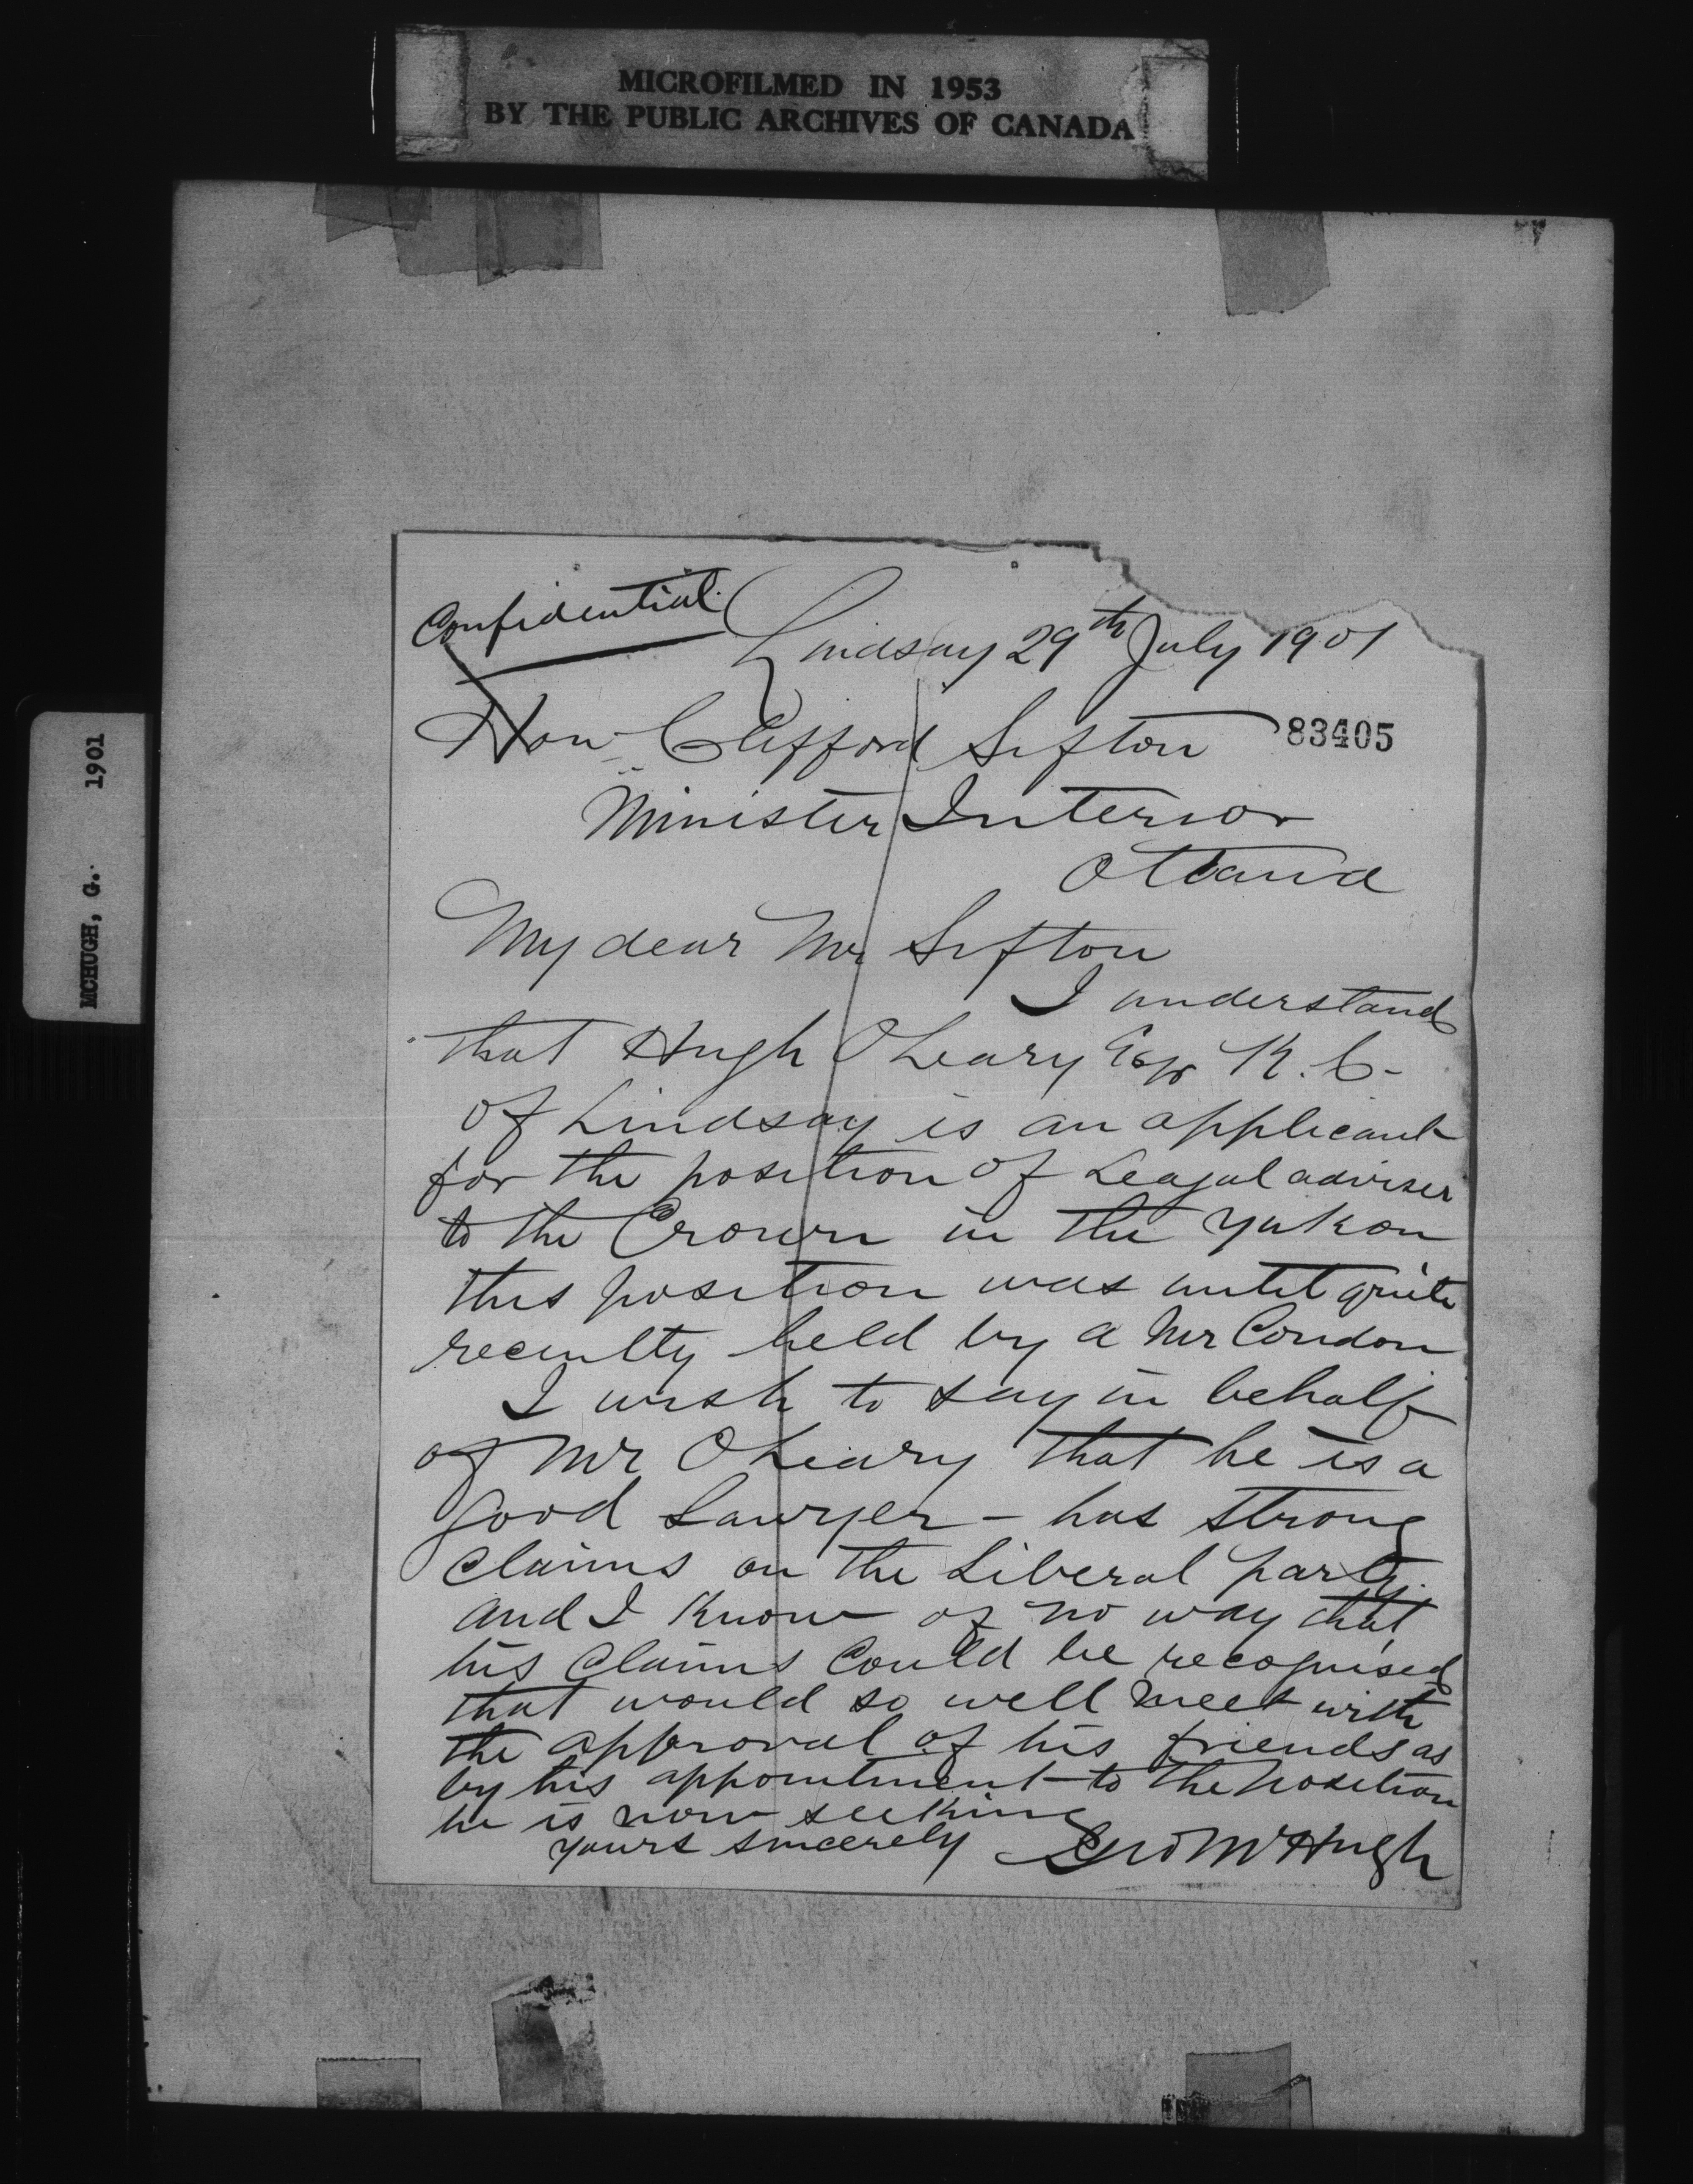 MICROFILMED IN 1953
BY THE PUBLIC ARCHIVES OF CANADA
MCHUGH, G. 1901
Confidential
Lindsay 29th July 1901
Hon Clifford Sifton
83405
Minister Interior
Ottawa
My dear Mr Sifton
I understand
that Hugh OLeary Esqr K.C.
of Lindsay is an applicant
for the position of Leagal adviser
to the Crown in the Yukon
this position was until quite
recently held by a Mr Condon
I wish to say in behalf
of Mr OLeary that he is a
good Lawyer - has strong
claims on the Liberal party
and I know of no way that
his claims could be recognised
that would so well meet with
the approval of his friends as
by his appointment to the position
he is now seeking
yours sincerely Geo McHugh